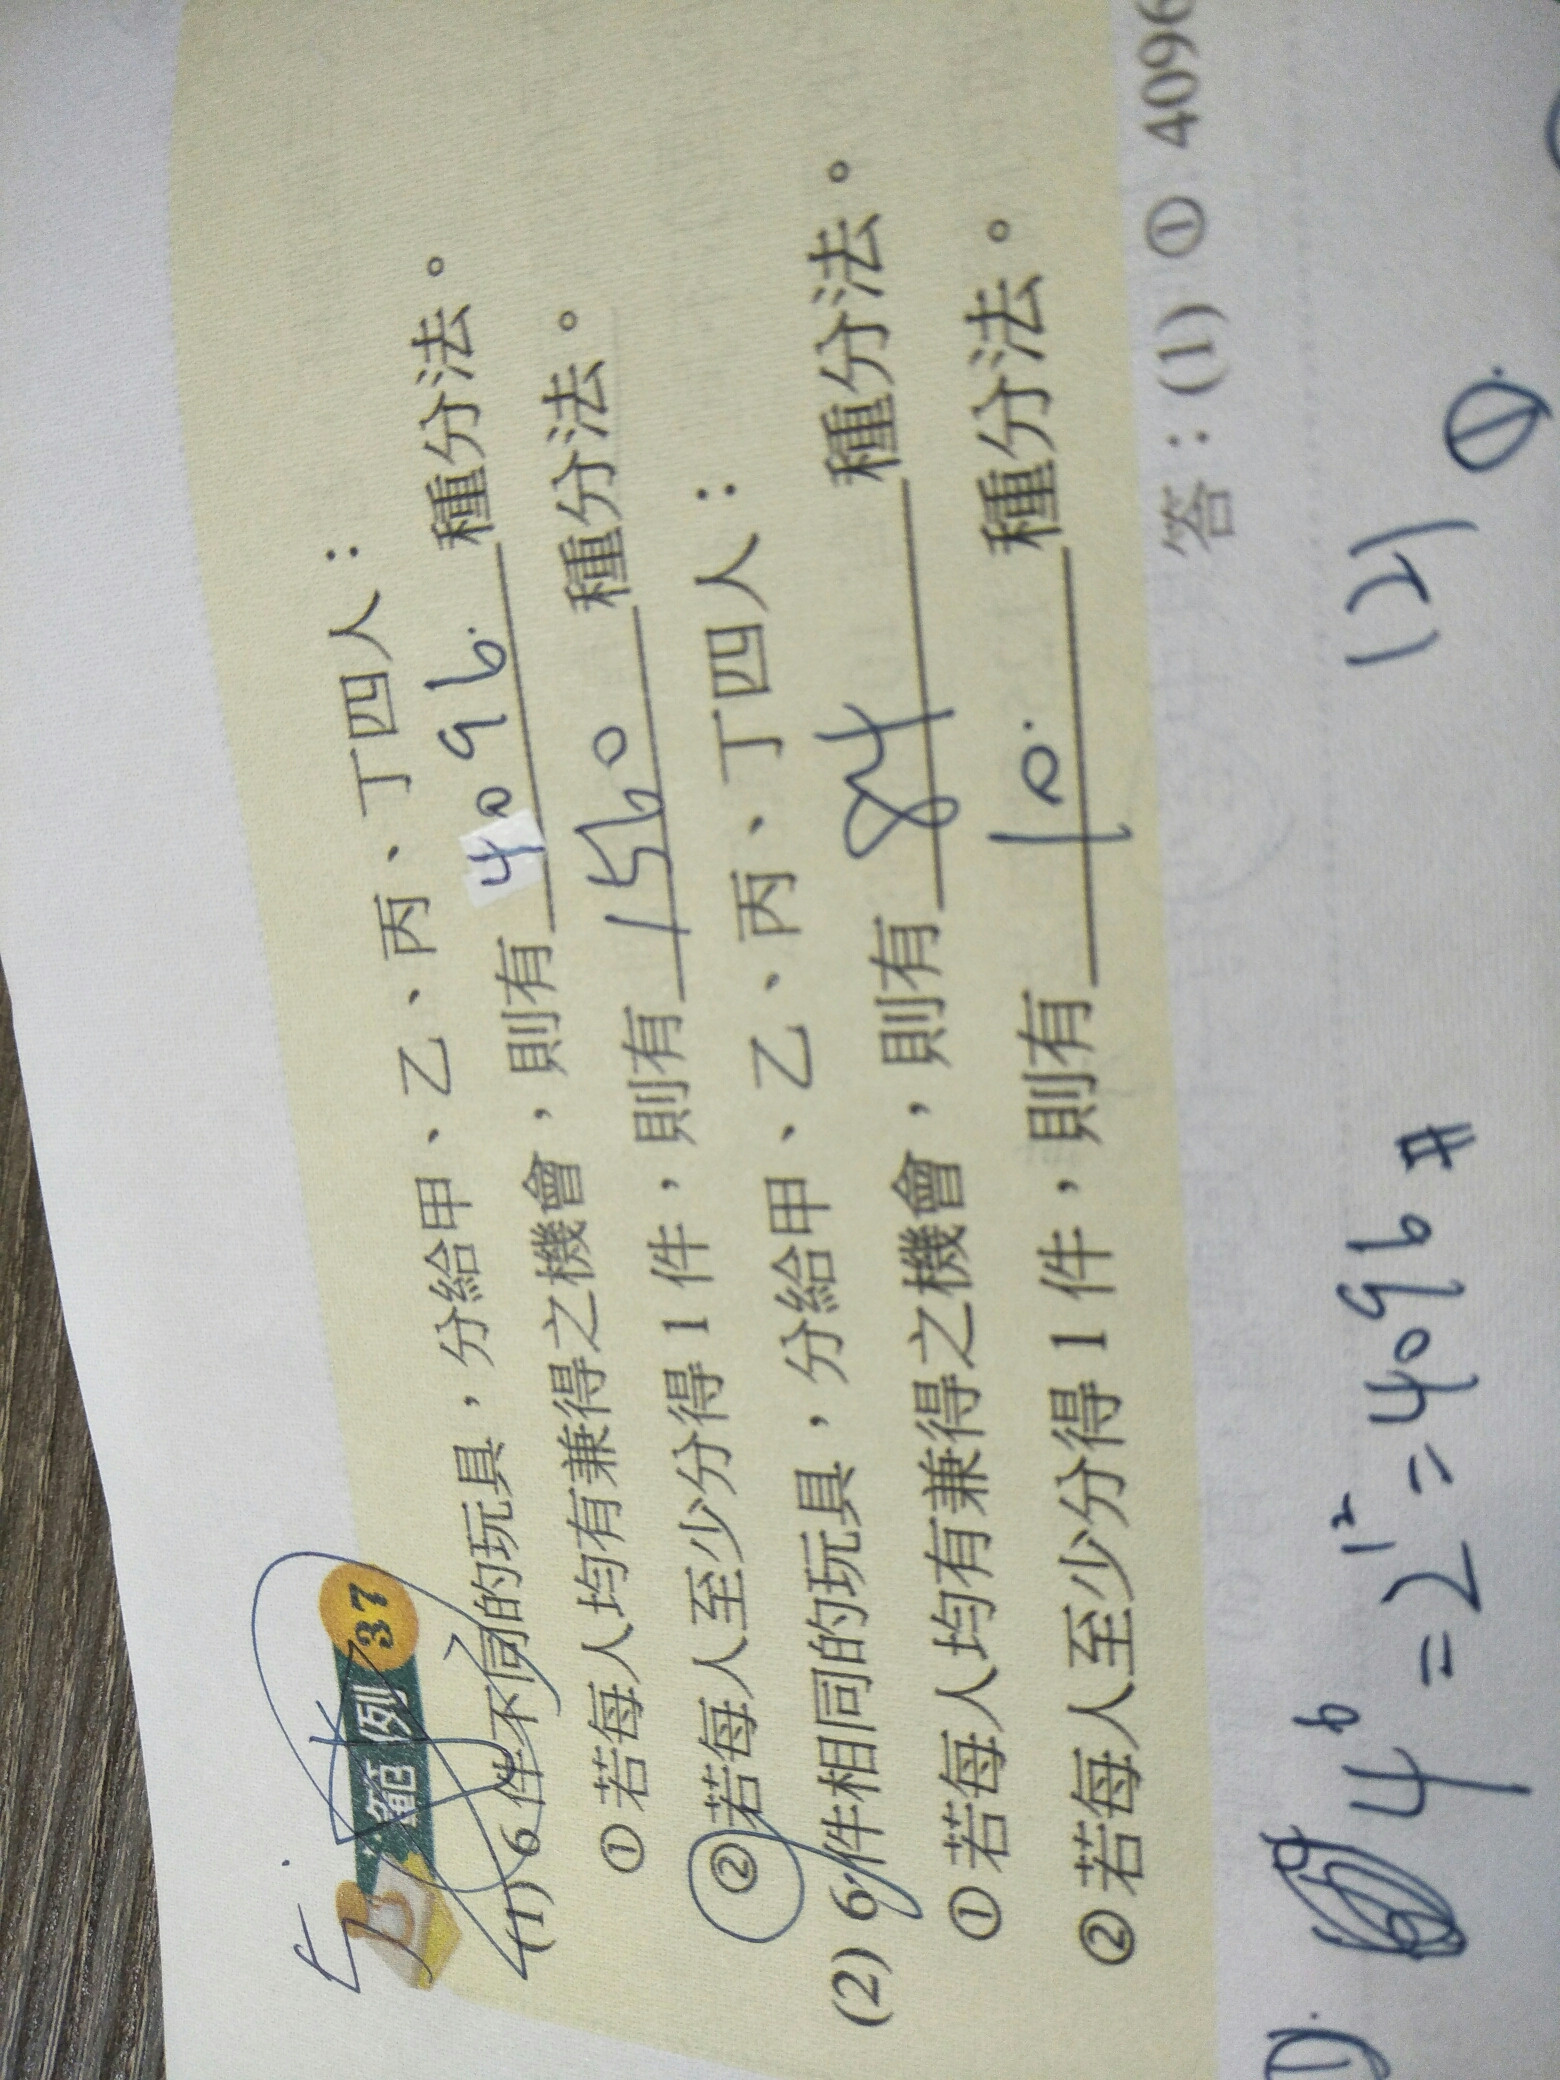 範例 37
(1) 6 件不同的玩具，分給甲、乙、丙、丁四人：
① 若每人均有兼得之機會，則有 4096 種分法。
② 若每人至少分得 1 件，則有 1560 種分法。
(2) 6 件相同的玩具，分給甲、乙、丙、丁四人：
① 若每人均有兼得之機會，則有 84 種分法。
② 若每人至少分得 1 件，則有 10 種分法。
答：(1) ① 4096
4^6 = 2^12 = 4096 #
(2) ①